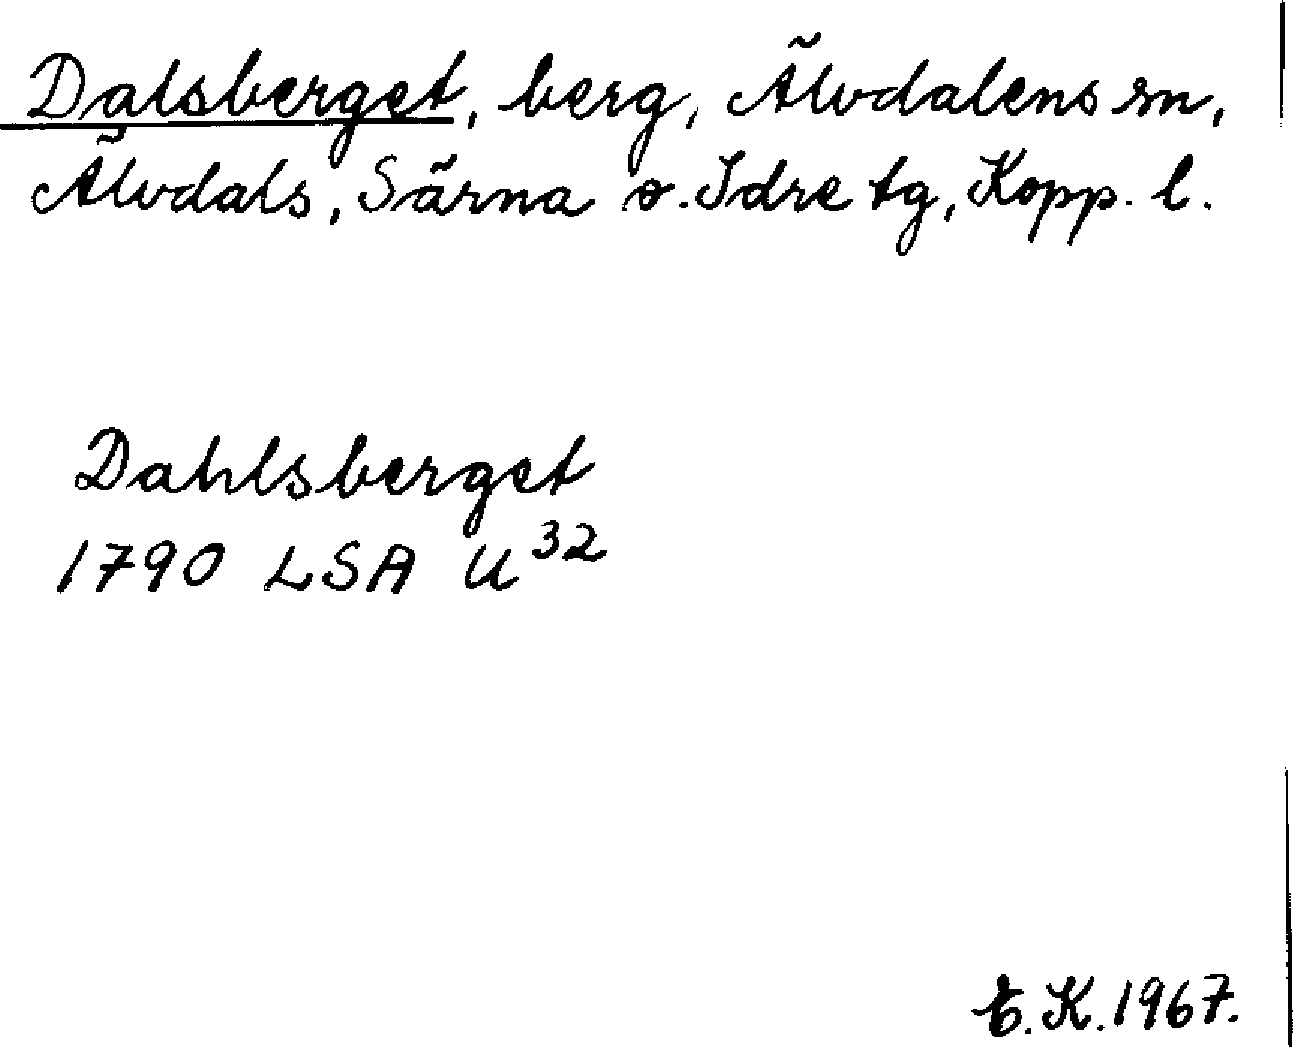 Dalsberget, berg, Älvdalens sn,
Älvdals, Särna o. Idre tg, Kopp. l.
Dahlsberget
1790 LSA U³²
K. 1967.